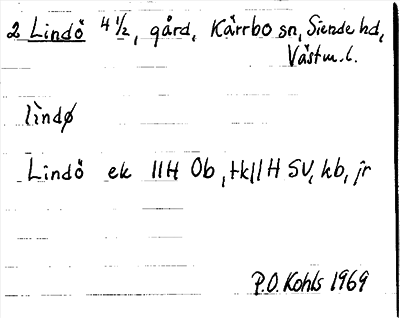 2 Lindö 4 1/2, gård, Kärrbo sn, Siende hd,
Västm. l.
lìndø
Lindö ek 11H Ob, tk 11H SV, hb, jr
P.O. Kohls 1969